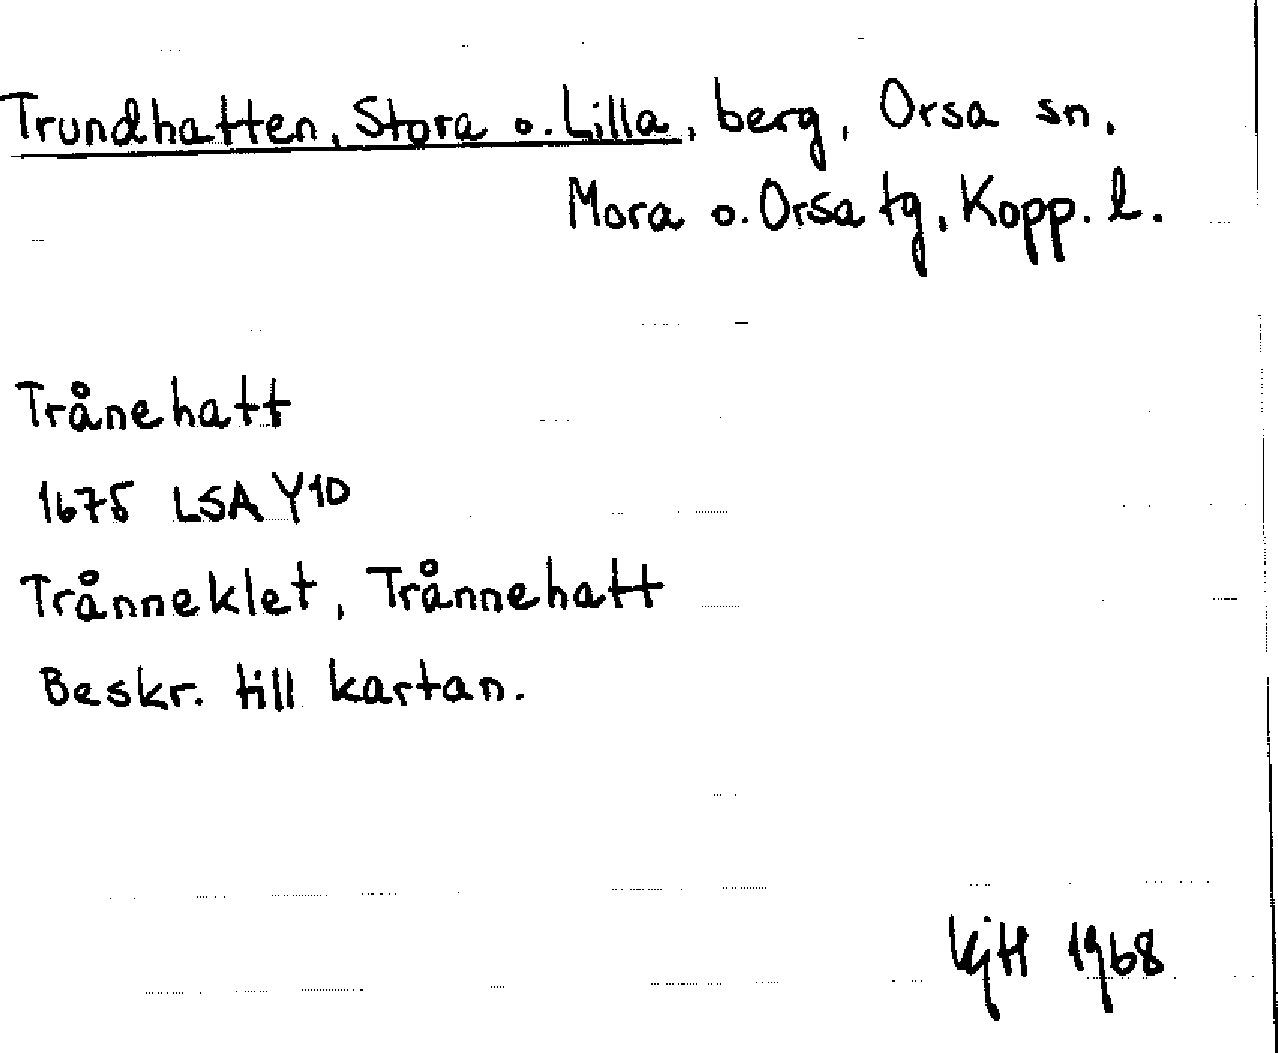 Trundhatten, Stora o. Lilla, berg, Orsa sn,
Mora o. Orsa tg, Kopp. l.
Trånehatt
1675 LSA Y10
Trånneklet, Trånnehatt
Beskr. till kartan.
1968